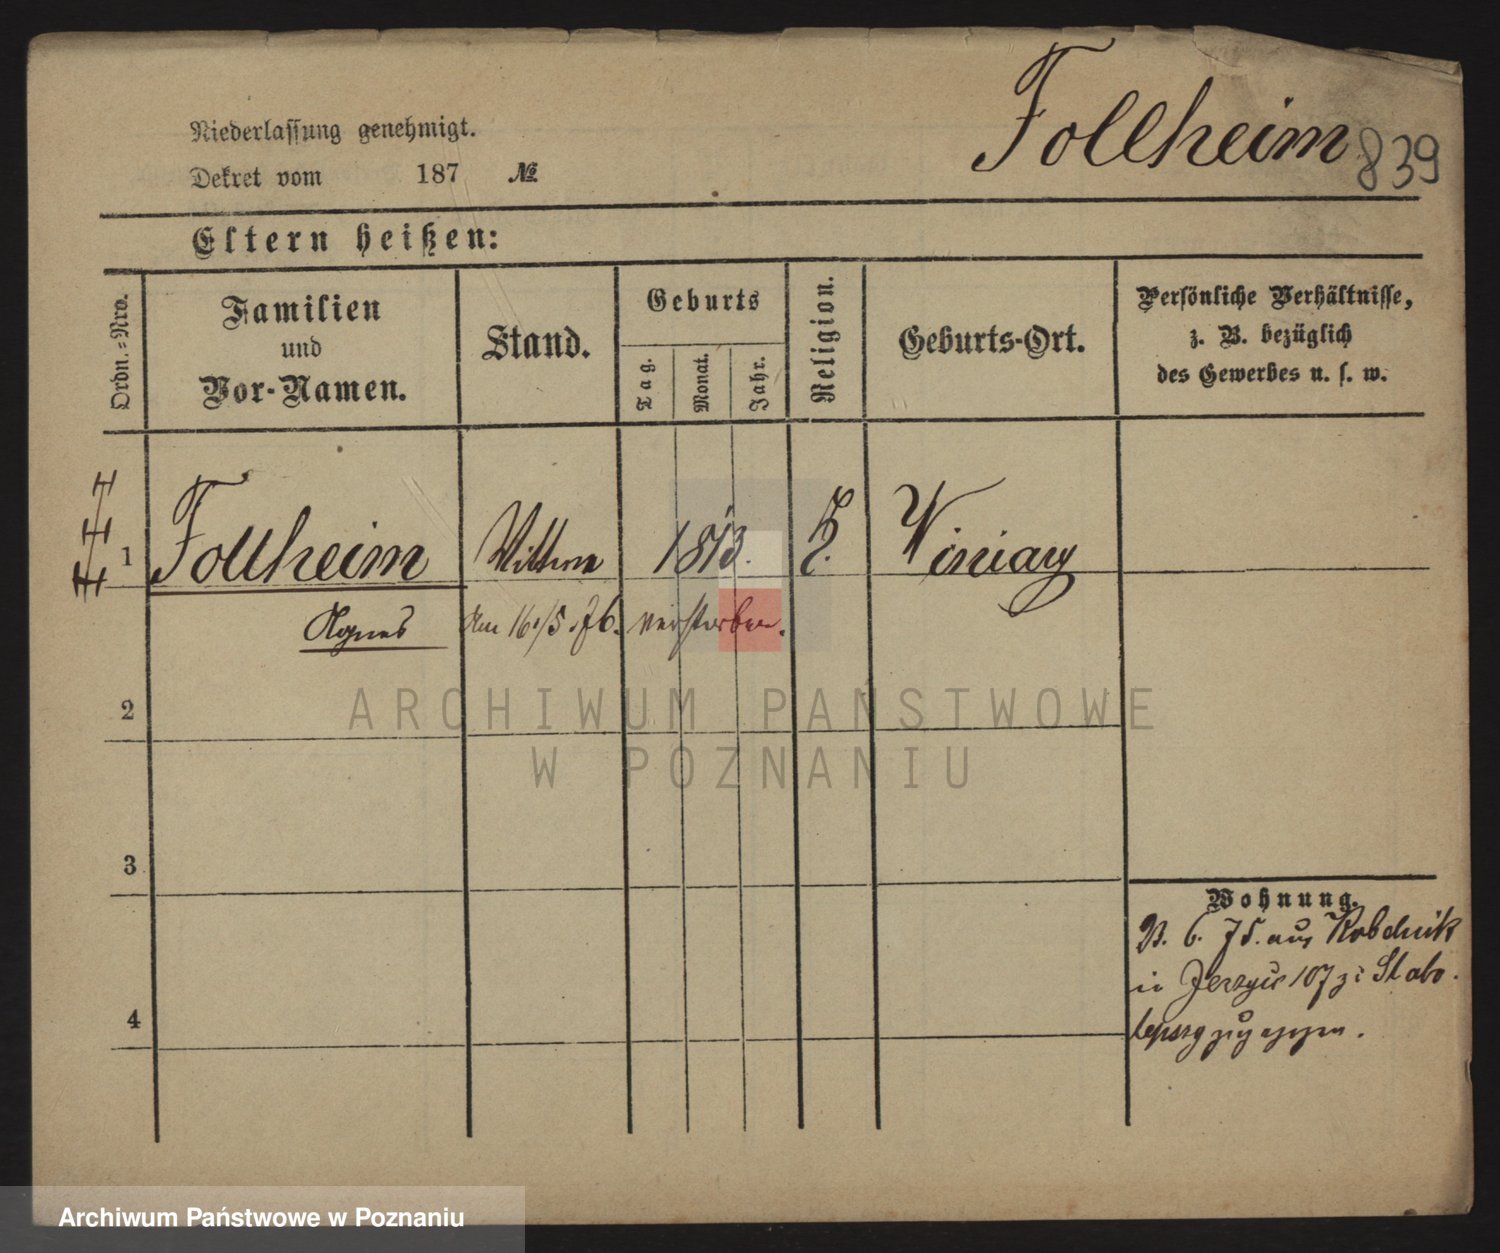 Follheim
839
Niederlassung genehmigt.
Dekret vom 187 №
Eltern heißen:
Ordn.-Nro.
Familien
und
Vor-Namen.
Stand.
Geburts
Tag.
Monat.
Jahr.
Religion.
Geburts-Ort.
Persönliche Verhältnisse,
z. B. bezüglich
des Gewerbes u. s. w.
1 Follheim Wittwe 1813. Winiary
Agnes Am 16./5. 76. verstorben.
2
3
4
Wohnung.
6. 75. aus
in 107
ARCHIWUM PAŃSTWOWE
W POZNANIU
Archiwum Państwowe w Poznaniu